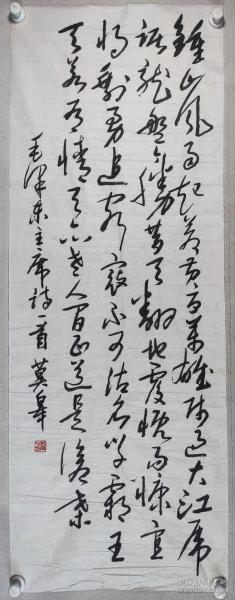 鍾山风雨起苍黄百万雄师过大江虎
踞龙盘今胜昔天翻地覆慨而慷宜
将剩勇追穷寇不可沽名学霸王
天若有情天亦老人间正道是沧桑
毛泽东主席诗一首 莫皋